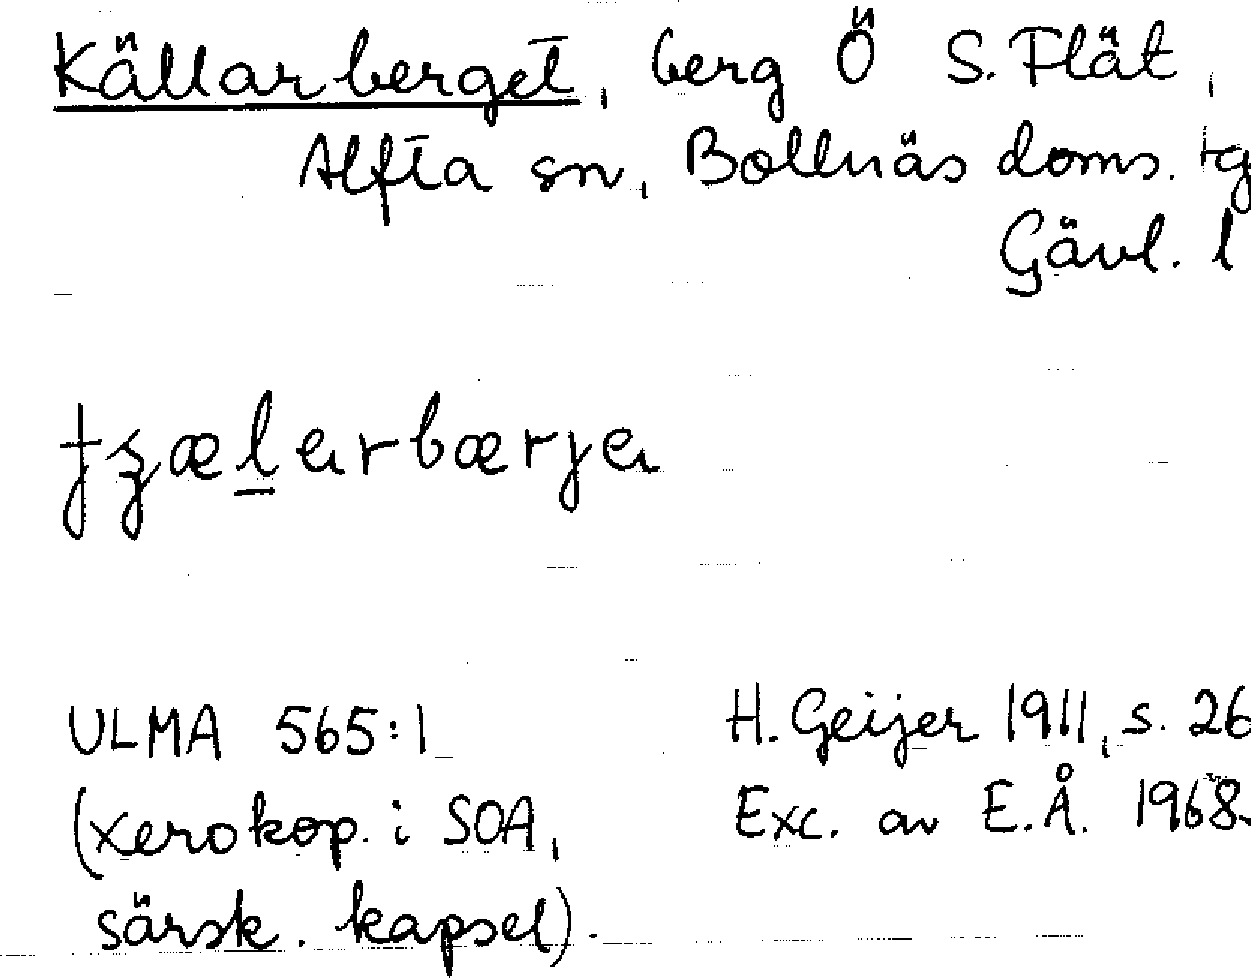 Källarberget, berg Ö S. Flät,
Alfta sn, Bollnäs doms. tg
Gävl. l
ɟʒælarbærjα
ULMA 565:1
(xerokop. i SOA,
särsk. kapsel).
H. Geijer 1911, s. 26
Exc. av E.Å. 1968.